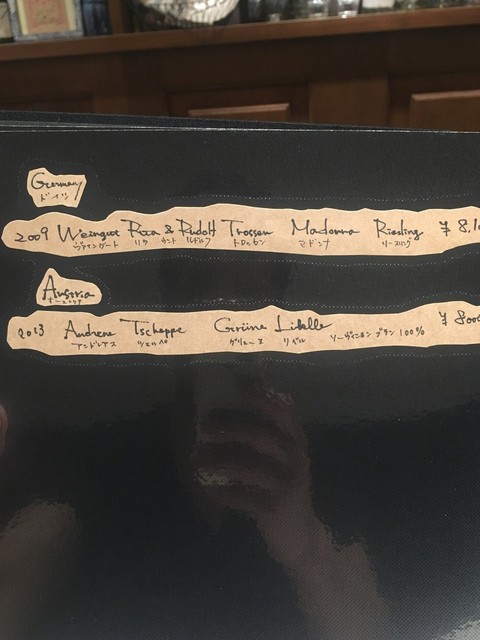 Germany
ドイツ
2009 Weingut Rita & Rudolf Trossen Madonna Riesling ¥ 8.10
ヴァイングート リタ ウント ルドルフ トロッセン マドンナ リースリング
Austria
オーストリア
2013 Andreas Tscheppe Grüne Libelle ソーヴィニヨン ブラン 100% ¥ 8000
アンドレアス ツェッペ グリューネ リベレ